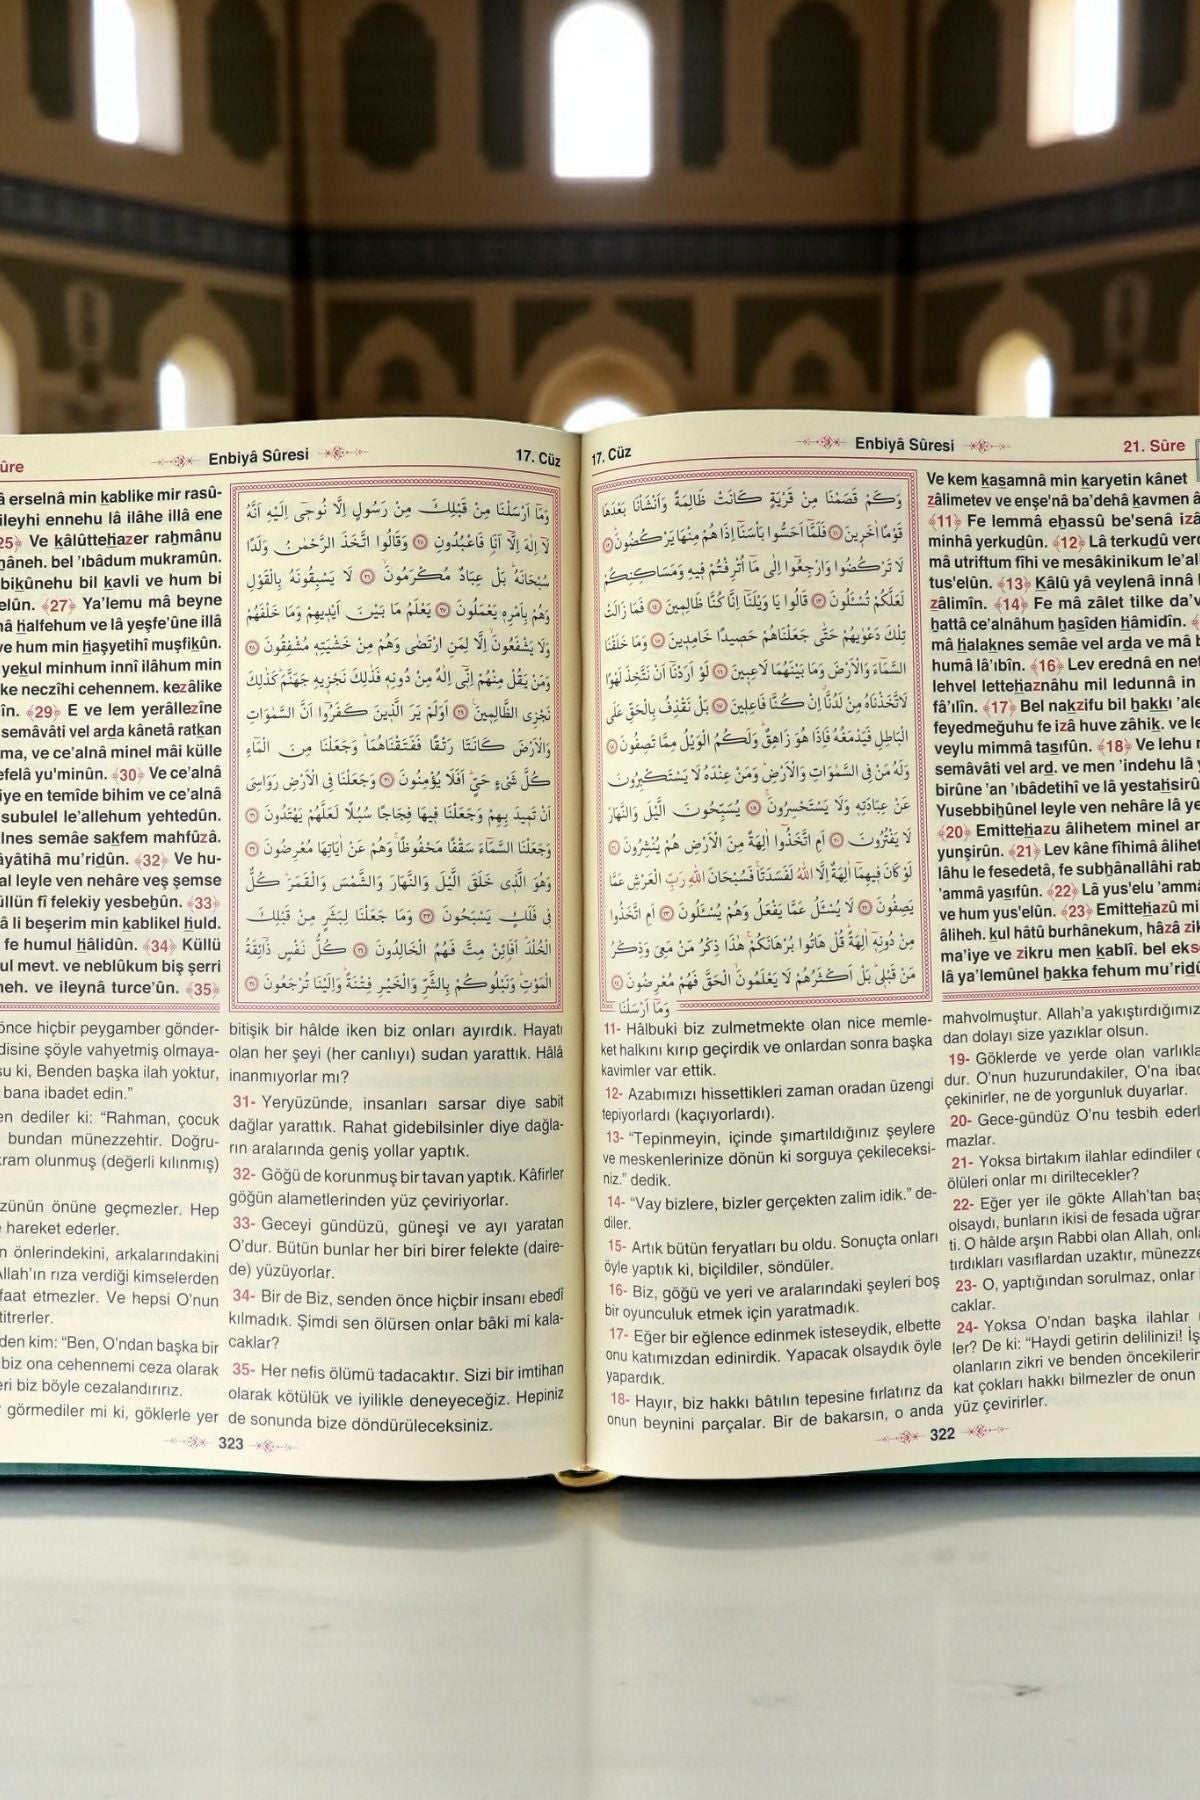 17. Cüz
Enbiyâ Sûresi
21. Sûre
وَكَمْ قَصَمْنَا مِنْ قَرْيَةٍ كَانَتْ ظَالِمَةً وَاَنْشَأْنَا بَعْدَهَا
قَوْمًا اٰخَرِينَ ﴿١١﴾ فَلَمَّٓا اَحَسُّوا بَأْسَنَٓا اِذَا هُمْ مِنْهَا يَرْكُضُونَ ﴿١٢﴾
لَا تَرْكُضُوا وَارْجِعُٓوا اِلٰى مَٓا اُتْرِفْتُمْ فِيهِ وَمَسَاكِنِكُمْ
لَعَلَّكُمْ تُسْـَٔلُونَ ﴿١٣﴾ قَالُوا يَا وَيْلَنَٓا اِنَّا كُنَّا ظَالِمِينَ ﴿١٤﴾ فَمَا زَالَتْ
تِلْكَ دَعْوٰيهُمْ حَتّٰى جَعَلْنَاهُمْ حَصِيدًا خَامِدِينَ ﴿١٥﴾ وَمَا خَلَقْنَا
السَّمَٓاءَ وَالْاَرْضَ وَمَا بَيْنَهُمَا لَاعِبِينَ ﴿١٦﴾ لَوْ اَرَدْنَٓا اَنْ نَتَّخِذَ لَهْوًا
لَاتَّخَذْنَاهُ مِنْ لَدُنَّٓا اِنْ كُنَّا فَاعِلِينَ ﴿١٧﴾ بَلْ نَقْذِفُ بِالْحَقِّ عَلَى
الْبَاطِلِ فَيَدْمَغُهُ فَاِذَا هُوَ زَاهِقٌ وَلَكُمُ الْوَيْلُ مِمَّا تَصِفُونَ ﴿١٨﴾
وَلَهُ مَنْ فِي السَّمٰوَاتِ وَالْاَرْضِ وَمَنْ عِنْدَهُ لَا يَسْتَكْبِرُونَ
عَنْ عِبَادَتِهِ وَلَا يَسْتَحْسِرُونَ ﴿١٩﴾ يُسَبِّحُونَ الَّيْلَ وَالنَّهَارَ
لَا يَفْتُرُونَ ﴿٢٠﴾ اَمِ اتَّخَذُٓوا اٰلِهَةً مِنَ الْاَرْضِ هُمْ يُنْشِرُونَ ﴿٢١﴾
لَوْ كَانَ فِيهِمَٓا اٰلِهَةٌ اِلَّا اللّٰهُ لَفَسَدَتَا فَسُبْحَانَ اللّٰهِ رَبِّ الْعَرْشِ عَمَّا
يَصِفُونَ ﴿٢٢﴾ لَا يُسْـَٔلُ عَمَّا يَفْعَلُ وَهُمْ يُسْـَٔلُونَ ﴿٢٣﴾ اَمِ اتَّخَذُوا
مِنْ دُونِهِٓ اٰلِهَةً قُلْ هَاتُوا بُرْهَانَكُمْ هٰذَا ذِكْرُ مَنْ مَعِيَ وَذِكْرُ
مَنْ قَبْلِي بَلْ اَكْثَرُهُمْ لَا يَعْلَمُونَ الْحَقَّ فَهُمْ مُعْرِضُونَ ﴿٢٤﴾
وَمَٓا اَرْسَلْنَا
Ve kem kasamnâ min karyetin kânet
zâlimetev ve enşe'nâ ba'dehâ kavmen
﴾11﴿ Fe lemmâ ehassû be'senâ
minhâ yerkudûn. ﴾12﴿ Lâ terkudû
mâ utriftum fîhi ve mesâkinikum
tus'elûn. ﴾13﴿ Kâlû yâ veylenâ innâ
zâlimîn. ﴾14﴿ Fe mâ zâlet tilke
hattâ ce'alnâhum hasîden hâmidîn.
mâ halaknes semâe vel arda ve mâ
humâ lâ'ıbîn. ﴾16﴿ Lev erednâ en
lehvel lettehaznâhu mil ledunnâ in
fâ'ılîn. ﴾17﴿ Bel nakzifu bil hakkı
feyedmeğuhu fe izâ huve zâhik. ve
veylu mimmâ tasıfûn. ﴾18﴿ Ve lehu
semâvâti vel ard. ve men 'indehu
birûne 'an 'ıbâdetihî ve lâ
Yusebbihûnel leyle ven nehâre lâ
﴾20﴿ Emittehazu âlihetem minel
yunşirûn. ﴾21﴿ Lev kâne fîhimâ
lâhu le fesedetâ, fe subhânallâhi
'ammâ yasıfûn. ﴾22﴿ Lâ yus'elu
ve hum yus'elûn. ﴾23﴿ Emittehazû
âliheh. kul hâtû burhânekum, hâzâ
ma'iye ve zikru men kablî. bel
lâ ya'lemûnel hakka fehum
11- Hâlbuki biz zulmetmekte olan nice memle-
ket halkını kırıp geçirdik ve onlardan sonra başka
kavimler var ettik.
12- Azabımızı hissettikleri zaman oradan üzengi
tepiyorlardı (kaçıyorlardı).
13- “Tepinmeyin, içinde şımartıldığınız şeylere
ve meskenlerinize dönün ki sorguya çekileceksi-
niz.” dedik.
14- “Vay bizlere, bizler gerçekten zalim idik.” de-
diler.
15- Artık bütün feryatları bu oldu. Sonuçta onları
öyle yaptık ki, biçildiler, söndüler.
16- Biz, göğü ve yeri ve aralarındaki şeyleri boş
bir oyunculuk etmek için yaratmadık.
17- Eğer bir eğlence edinmek isteseydik, elbette
onu katımızdan edinirdik. Yapacak olsaydık öyle
yapardık.
18- Hayır, biz hakkı bâtılın tepesine fırlatırız da
onun beynini parçalar. Bir de bakarsın, o anda
mahvolmuştur. Allah’a yakıştırdığımız
dan dolayı size yazıklar olsun.
19- Göklerde ve yerde olan
dur. O’nun huzurundakiler, O’na
çekinirler, ne de yorgunluk duyarlar.
20- Gece-gündüz O’nu tesbih
mazlar.
21- Yoksa birtakım ilahlar edindiler
ölüleri onlar mı diriltecekler?
22- Eğer yer ile gökte Allah’tan
olsaydı, bunların ikisi de fesada
ti. O hâlde arşın Rabbi olan Allah,
tırdıkları vasıflardan uzaktır,
23- O, yaptığından sorulmaz, onlar
caklar.
24- Yoksa O’ndan başka ilahlar
ler? De ki: “Haydi getirin delilinizi!
olanların zikri ve benden
kat çokları hakkı bilmezler de onun
yüz çevirirler.
322
Enbiyâ Sûresi
17. Cüz
وَمَٓا اَرْسَلْنَا مِنْ قَبْلِكَ مِنْ رَسُولٍ اِلَّا نُوحِٓي اِلَيْهِ اَنَّهُ
لَٓا اِلٰهَ اِلَّٓا اَنَا فَاعْبُدُونِ ﴿٢٥﴾ وَقَالُوا اتَّخَذَ الرَّحْمٰنُ وَلَدًا
سُبْحَانَهُ بَلْ عِبَادٌ مُكْرَمُونَ ﴿٢٦﴾ لَا يَسْبِقُونَهُ بِالْقَوْلِ
وَهُمْ بِاَمْرِهِ يَعْمَلُونَ ﴿٢٧﴾ يَعْلَمُ مَا بَيْنَ اَيْدِيهِمْ وَمَا خَلْفَهُمْ
وَلَا يَشْفَعُونَ اِلَّا لِمَنِ ارْتَضٰى وَهُمْ مِنْ خَشْيَتِهِ مُشْفِقُونَ ﴿٢٨﴾
وَمَنْ يَقُلْ مِنْهُمْ اِنِّٓي اِلٰهٌ مِنْ دُونِهِ فَذٰلِكَ نَجْزِيهِ جَهَنَّمَ كَذٰلِكَ
نَجْزِي الظَّالِمِينَ ﴿٢٩﴾ اَوَلَمْ يَرَ الَّذِينَ كَفَرُٓوا اَنَّ السَّمٰوَاتِ
وَالْاَرْضَ كَانَتَا رَتْقًا فَفَتَقْنَاهُمَا وَجَعَلْنَا مِنَ الْمَٓاءِ
كُلَّ شَيْءٍ حَيٍّ اَفَلَا يُؤْمِنُونَ ﴿٣٠﴾ وَجَعَلْنَا فِي الْاَرْضِ رَوَاسِيَ
اَنْ تَمِيدَ بِهِمْ وَجَعَلْنَا فِيهَا فِجَاجًا سُبُلًا لَعَلَّهُمْ يَهْتَدُونَ ﴿٣١﴾
وَجَعَلْنَا السَّمَٓاءَ سَقْفًا مَحْفُوظًا وَهُمْ عَنْ اٰيَاتِهَا مُعْرِضُونَ ﴿٣٢﴾
وَهُوَ الَّذِي خَلَقَ الَّيْلَ وَالنَّهَارَ وَالشَّمْسَ وَالْقَمَرَ كُلٌّ
فِي فَلَكٍ يَسْبَحُونَ ﴿٣٣﴾ وَمَا جَعَلْنَا لِبَشَرٍ مِنْ قَبْلِكَ
الْخُلْدَ اَفَا۬ئِنْ مِتَّ فَهُمُ الْخَالِدُونَ ﴿٣٤﴾ كُلُّ نَفْسٍ ذَٓائِقَةُ
الْمَوْتِ وَنَبْلُوكُمْ بِالشَّرِّ وَالْخَيْرِ فِتْنَةً وَاِلَيْنَا تُرْجَعُونَ ﴿٣٥﴾
erselnâ min kablike mir rasû-
ileyhi ennehu lâ ilâhe illâ ene
Ve kâlûttehazer rahmânu
bel 'ıbâdum mukramûn.
bil kavli ve hum bi
﴾27﴿ Ya’lemu mâ beyne
halfehum ve lâ yeşfe’ûne illâ
ve hum min haşyetihî muşfikûn.
yekul minhum innî ilâhum min
neczîhi cehennem. kezâlike
﴾29﴿ E ve lem yerâllezîne
semâvâti vel arda kânetâ ratkan
ve ce’alnâ minel mâi külle
yu'minûn. ﴾30﴿ Ve ce’alnâ
en temîde bihim ve ce’alnâ
subulel le’allehum yehtedûn.
semâe sakfem mahfûzâ.
mu’ridûn. ﴾32﴿ Ve hu-
leyle ven nehâre veş şemse
fî felekiy yesbehûn. ﴾33﴿
li beşerim min kablikel huld.
fe humul hâlidûn. ﴾34﴿ Küllü
mevt. ve neblûkum biş şerri
ve ileynâ turce’ûn. ﴾35﴿
önce hiçbir peygamber gönder-
şöyle vahyetmiş olmaya-
ki, Benden başka ilah yoktur,
bana ibadet edin.”
dediler ki: “Rahman, çocuk
bundan münezzehtir. Doğru-
olunmuş (değerli kılınmış)
önüne geçmezler. Hep
hareket ederler.
önlerindekini, arkalarındakini
rıza verdiği kimselerden
etmezler. Ve hepsi O’nun
titrerler.
kim: “Ben, O’ndan başka bir
biz ona cehennemi ceza olarak
biz böyle cezalandırırız.
görmediler mi ki, göklerle yer
bitişik bir hâlde iken biz onları ayırdık. Hayatı
olan her şeyi (her canlıyı) sudan yarattık. Hâlâ
inanmıyorlar mı?
31- Yeryüzünde, insanları sarsar diye sabit
dağlar yarattık. Rahat gidebilsinler diye dağla-
rın aralarında geniş yollar yaptık.
32- Göğü de korunmuş bir tavan yaptık. Kâfirler
göğün alametlerinden yüz çeviriyorlar.
33- Geceyi gündüzü, güneşi ve ayı yaratan
O’dur. Bütün bunlar her biri birer felekte (daire-
de) yüzüyorlar.
34- Bir de Biz, senden önce hiçbir insanı ebedî
kılmadık. Şimdi sen ölürsen onlar bâki mi kala-
caklar?
35- Her nefis ölümü tadacaktır. Sizi bir imtihan
olarak kötülük ve iyilikle deneyeceğiz. Hepiniz
de sonunda bize döndürüleceksiniz.
323